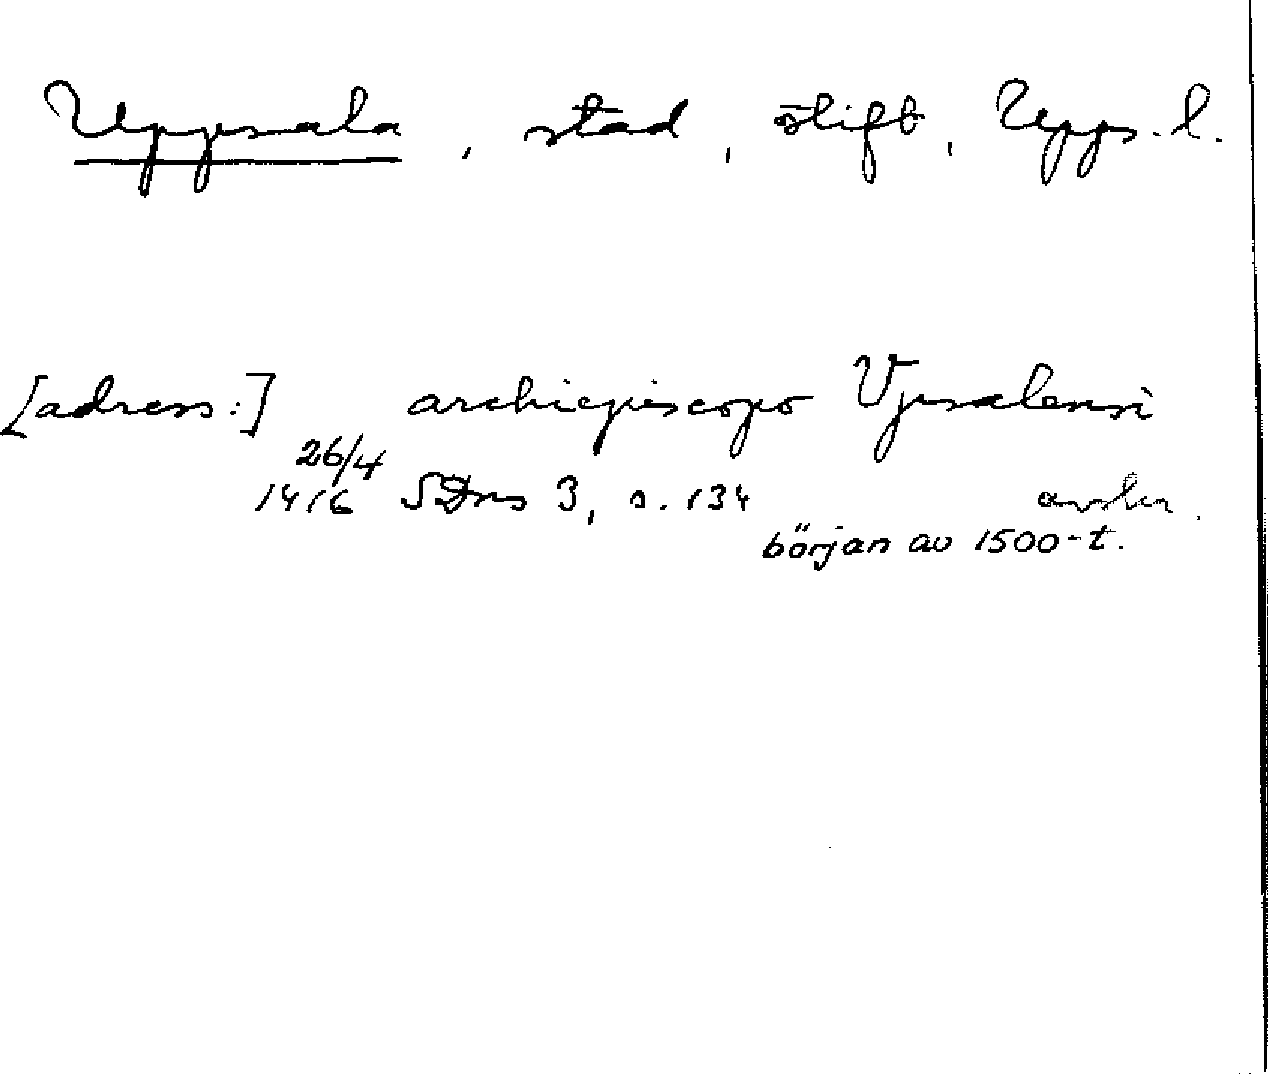 Uppsala, stad, stift, Upps. l.
[adress:] archiepiscopo Vpsalensi
26/4
1416 SDns 3, s. 134 avskr.
början av 1500-t.